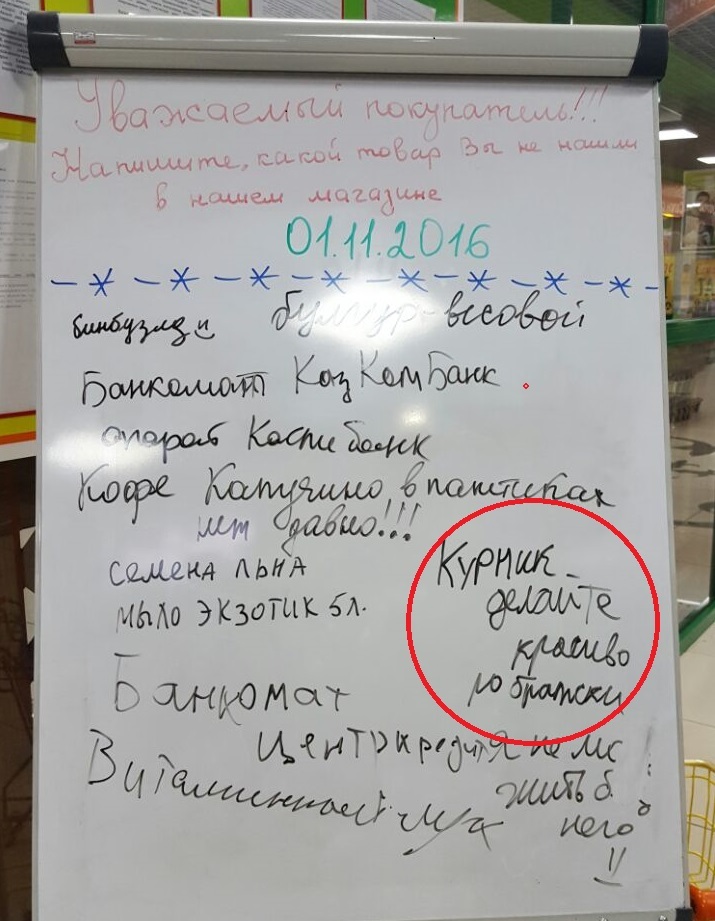 Уважаемый покупатель!!!
Напишите, какой товар Вы не нашли
в нашем магазине
01.11.2016
бинбузлэд
булгур-весовой
Банкомат КазКомБанк
апорат Каспи банк
Кофе Капучино в пакетиках
нет давно!!!
семена льна
мыло экзотик 5л.
Курник -
делайте
красиво
по братски
Банкомат
Центркредитя не мс
жить б
него
Витаминный